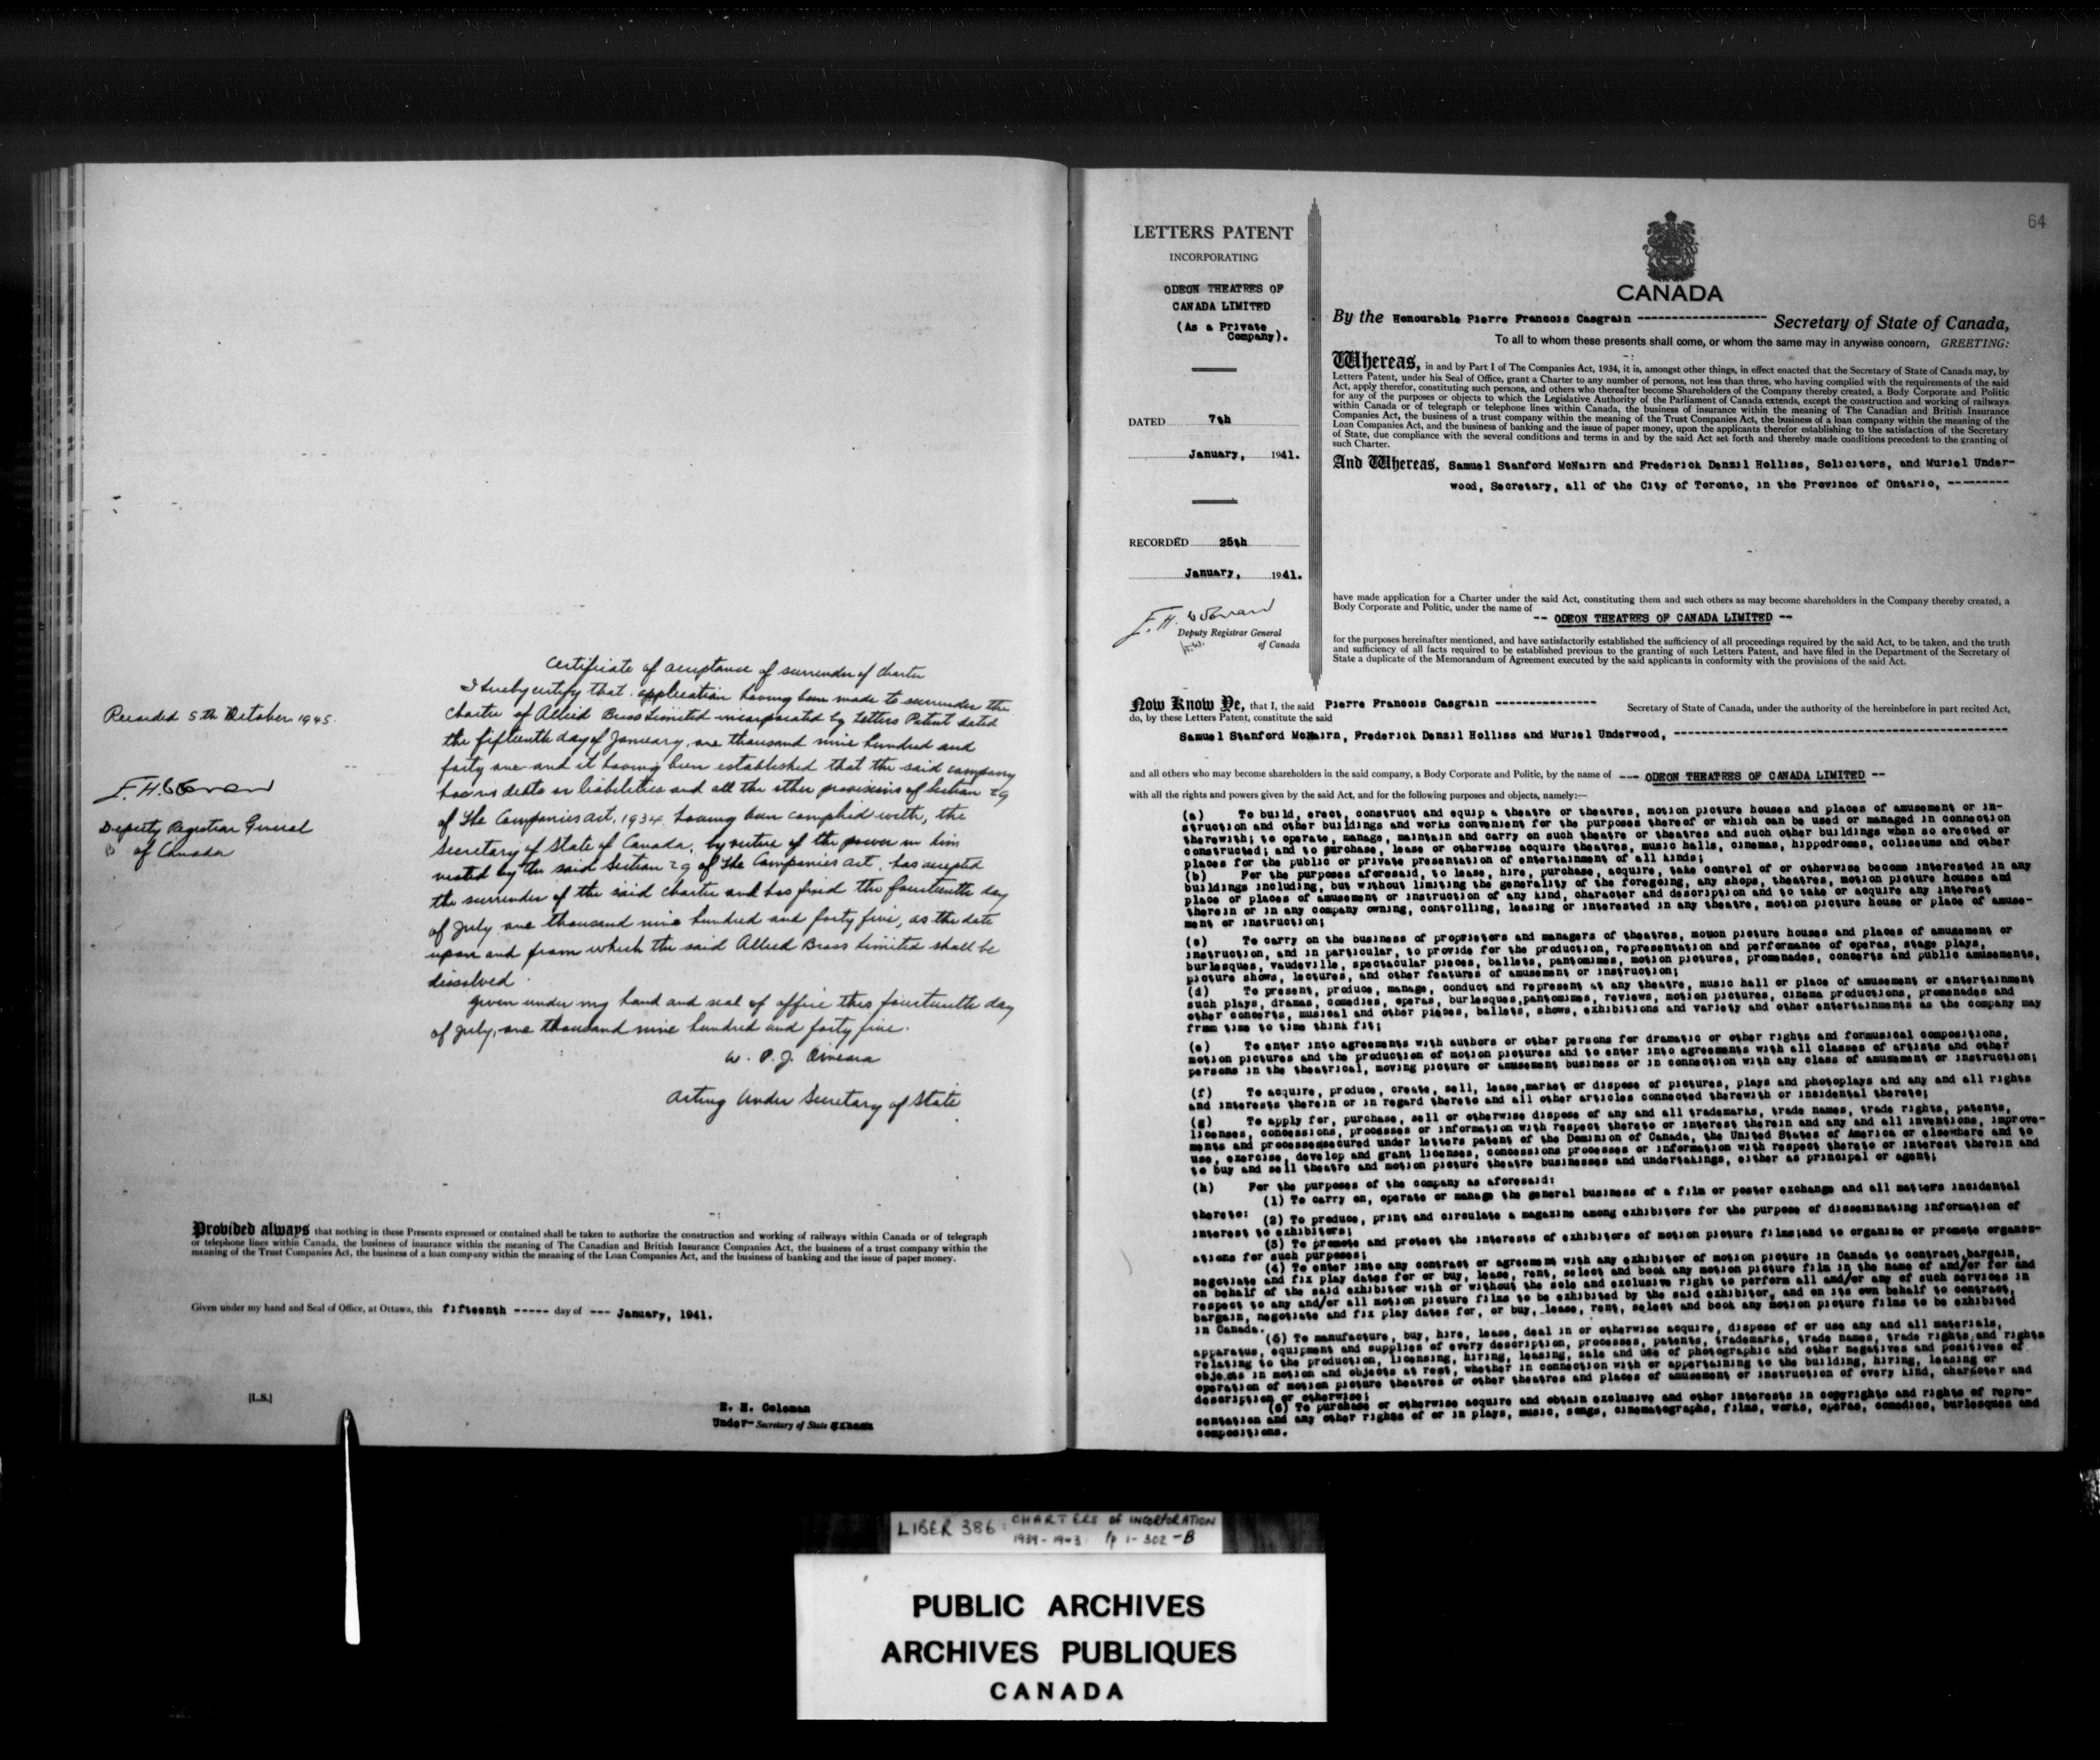 Certificate of acceptance of surrender of Charter
I hereby certify that application having been made to surrender the
Charter of Allied Brass Limited incorporated by Letters Patent dated
the fifteenth day of January, one thousand nine hundred and
forty one and it having been established that the said company
has no debts or liabilities and all the other provisions of Section 29
of The Companies Act, 1934 having been complied with, the
Secretary of State of Canada, by virtue of the power in him
vested by the said Section 29 of The Companies Act, has accepted
the surrender of the said charter and has fixed the fourteenth day
of July one thousand nine hundred and forty five, as the date
upon and from which the said Allied Brass Limited shall be
dissolved.
Given under my hand and seal of office this fourteenth day
of July, one thousand nine hundred and forty five.
W. P. J. O'Meara
Acting Under Secretary of State
Recorded 5th October 1945.
Deputy Registrar General
of Canada
Provided always that nothing in these Presents expressed or contained shall be taken to authorize the construction and working of railways within Canada or of telegraph
or telephone lines within Canada, the business of insurance within the meaning of The Canadian and British Insurance Companies Act, the business of a trust company within the
meaning of the Trust Companies Act, the business of a loan company within the meaning of the Loan Companies Act, and the business of banking and the issue of paper money.
Given under my hand and Seal of Office, at Ottawa, this fifteenth ----- day of --- January, 1941.
[L.S.]
E. H. Coleman
Under- Secretary of State
64
LETTERS PATENT
INCORPORATING
ODEON THEATRES OF
CANADA LIMITED
(As a Private
Company).
DATED 7th
January, 1941.
RECORDED 25th
January, 1941.
Deputy Registrar General
of Canada
CANADA
By the Honourable Pierre Francois Casgrain ------------------- Secretary of State of Canada,
To all to whom these presents shall come, or whom the same may in anywise concern, GREETING:
Whereas, in and by Part I of The Companies Act, 1934, it is, amongst other things, in effect enacted that the Secretary of State of Canada may, by
Letters Patent, under his Seal of Office, grant a Charter to any number of persons, not less than three, who having complied with the requirements of the said
Act, apply therefor, constituting such persons, and others who thereafter become Shareholders of the Company thereby created, a Body Corporate and Politic
for any of the purposes or objects to which the Legislative Authority of the Parliament of Canada extends, except the construction and working of railways
within Canada or of telegraph or telephone lines within Canada, the business of insurance within the meaning of The Canadian and British Insurance
Companies Act, the business of a trust company within the meaning of the Trust Companies Act, the business of a loan company within the meaning of the
Loan Companies Act, and the business of banking and the issue of paper money, upon the applicants therefor establishing to the satisfaction of the Secretary
of State, due compliance with the several conditions and terms in and by the said Act set forth and thereby made conditions precedent to the granting of
such Charter.
And Whereas, Samuel Stanford McNairn and Frederick Denzil Holliss, Solicitors, and Muriel Under-
wood, Secretary, all of the City of Toronto, in the Province of Ontario, ---------
have made application for a Charter under the said Act, constituting them and such others as may become shareholders in the Company thereby created, a
Body Corporate and Politic, under the name of
-- ODEON THEATRES OF CANADA LIMITED --
for the purposes hereinafter mentioned, and have satisfactorily established the sufficiency of all proceedings required by the said Act, to be taken, and the truth
and sufficiency of all facts required to be established previous to the granting of such Letters Patent, and have filed in the Department of the Secretary of
State a duplicate of the Memorandum of Agreement executed by the said applicants in conformity with the provisions of the said Act.
Now Know Ye, that I, the said Pierre Francois Casgrain --------------- Secretary of State of Canada, under the authority of the hereinbefore in part recited Act,
do, by these Letters Patent, constitute the said
Samuel Stanford McNairn, Frederick Denzil Holliss and Muriel Underwood, ---------------
and all others who may become shareholders in the said company, a Body Corporate and Politic, by the name of --- ODEON THEATRES OF CANADA LIMITED --
with all the rights and powers given by the said Act, and for the following purposes and objects, namely:—
(a) To build, erect, construct and equip a theatre or theatres, motion picture houses and places of amusement or in-
struction and other buildings and works convenient for the purposes thereof or which can be used or managed in connection
therewith; to operate, manage, maintain and carry on such theatre or theatres and such other buildings when so erected or
constructed; and to purchase, lease or otherwise acquire theatres, music halls, cinemas, hippodromes, coliseums and other
places for the public or private presentation of entertainment of all kinds;
(b) For the purposes aforesaid, to lease, hire, purchase, acquire, take control of or otherwise become interested in any
buildings including, but without limiting the generality of the foregoing, any shops, theatres, motion picture houses and
place or places of amusement or instruction of any kind, character and description and to take or acquire any interest
therein or in any company owning, controlling, leasing or interested in any theatre, motion picture house or place of amuse-
ment or instruction;
(c) To carry on the business of proprietors and managers of theatres, motion picture houses and places of amusement or
instruction, and in particular, to provide for the production, representation and performance of operas, stage plays,
burlesques, vaudeville, spectacular pieces, ballets, pantomimes, motion pictures, promenades, concerts and public amusements,
picture shows, lectures, and other features of amusement or instruction;
(d) To present, produce, manage, conduct and represent at any theatre, music hall or place of amusement or entertainment
such plays, dramas, comedies, operas, burlesques,pantomimes, reviews, motion pictures, cinema productions, promenades and
other concerts, musical and other pieces, ballets, shows, exhibitions and variety and other entertainments as the company may
from time to time think fit;
(e) To enter into agreements with authors or other persons for dramatic or other rights and formusical compositions,
motion pictures and the production of motion pictures and to enter into agreements with all classes of artists and other
persons in the theatrical, moving picture or amusement business or in connection with any class of amusement or instruction;
(f) To acquire, produce, create, sell, lease,market or dispose of pictures, plays and photoplays and any and all rights
and interests therein or in regard thereto and all other articles connected therewith or insidental thereto;
(g) To apply for, purchase, sell or otherwise dispose of any and all trademarks, trade names, trade rights, patents,
licenses, concessions, processes or information with respect thereto or interest therein and any and all inventions, improve-
ments and processessecured under letters patent of the Dominion of Canada, the United States of America or elsewhere and to
use, exercise, develop and grant licenses, concessions processes or information with respect thereto or interest therein and
to buy and sell theatre and motion picture theatre businesses and undertakings, either as principal or agent;
(h) For the purposes of the company as aforesaid:
(1) To carry on, operate or manage the general business of a film or poster exchange and all matters incidental
thereto:
(2) To produce, print and circulate a magazine among exhibitors for the purpose of disseminating information of
interest to exhibitors;
(3) To promote and protect the interests of exhibitors of motion picture films;and to organize or promote organiz-
ations for such purposes;
(4) To enter into any contract or agreement with any exhibitor of motion picture in Canada to contract,bargain,
negotiate and fix play dates for or buy, lease, rent, select and book any motion picture film in the name of and/or for and
on behalf of the said exhibitor with or without the sole and exclusive right to perform all and/or any of such services in
respect to any and/or all motion picture films to be exhibited by the said exhibitor, and on its own behalf to contract,
bargain, negotiate and fix play dates for, or buy, lease, rent, select and book any motion picture films to be exhibited
in Canada.
(5) To manufacture, buy, hire, lease, deal in or otherwise acquire, dispose of or use any and all materials,
apparatus, equipment and supplies of every description, processes, patents, trademarks, trade names, trade rights,and rights
relating to the production, licensing, hiring, leasing, sale and use of photographic and other negatives and positives of
objects in motion and objects at rest, whether in connection with or appertaining to the building, hiring, leasing or
operation of motion picture theatres or other theatres and places of amusement or instruction of every kind, character and
description or otherwise;
(6) To purchase or otherwise acquire and obtain exclusive and other interests in copyrights and rights of repre-
sentation and any other rights of or in plays, music, songs, cinematographs, films, works, operas, comedies, burlesques and
compositions.
LIBER 386: CHARTERS of INCORPORATION
1939-1943 pp 1-302-B
PUBLIC ARCHIVES
ARCHIVES PUBLIQUES
CANADA